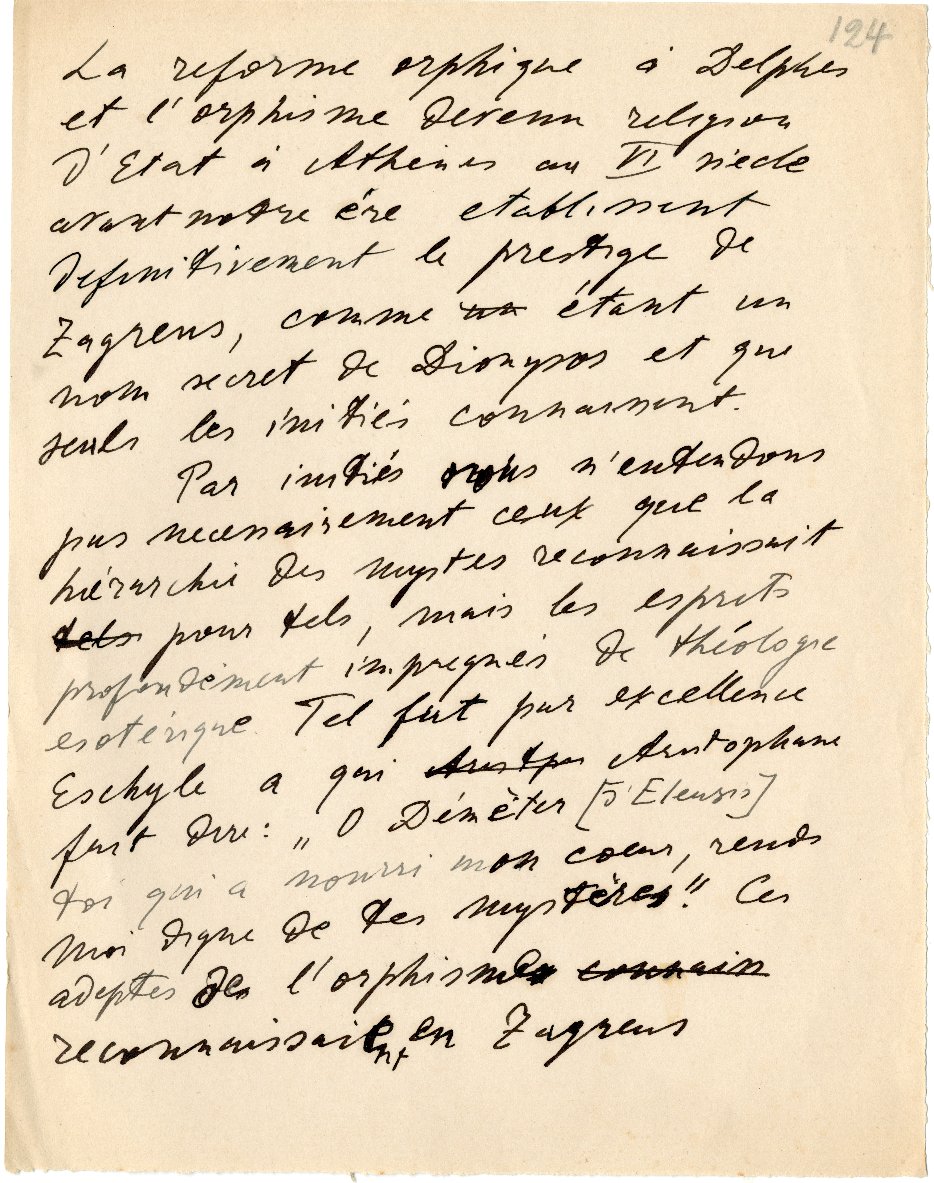 124
La reforme orphique à Delphes
et l'orphisme devenu religion
d'Etat à Athènes au VI siècle
avant notre ère etablissent
definitivement le prestige de
Zagreus, comme un étant un
nom secret de Dionysos et que
seuls les initiés connaissent.
Par initiés nous n'entendons
pas necessairement ceux que la
hiérarchie des mystes reconnaissait
tels pour tels, mais les esprits
profondément impregnés de théologie
esotérique. Tel fut par excellence
Eschyle a qui Aristophane
fait dire : „O Démèter [d'Eleusis]
toi qui a nourri mon coeur, rends
moi digne de tes mystères." Ces
adeptes de l'orphisme connaiss
reconnaissaient en Zagreus